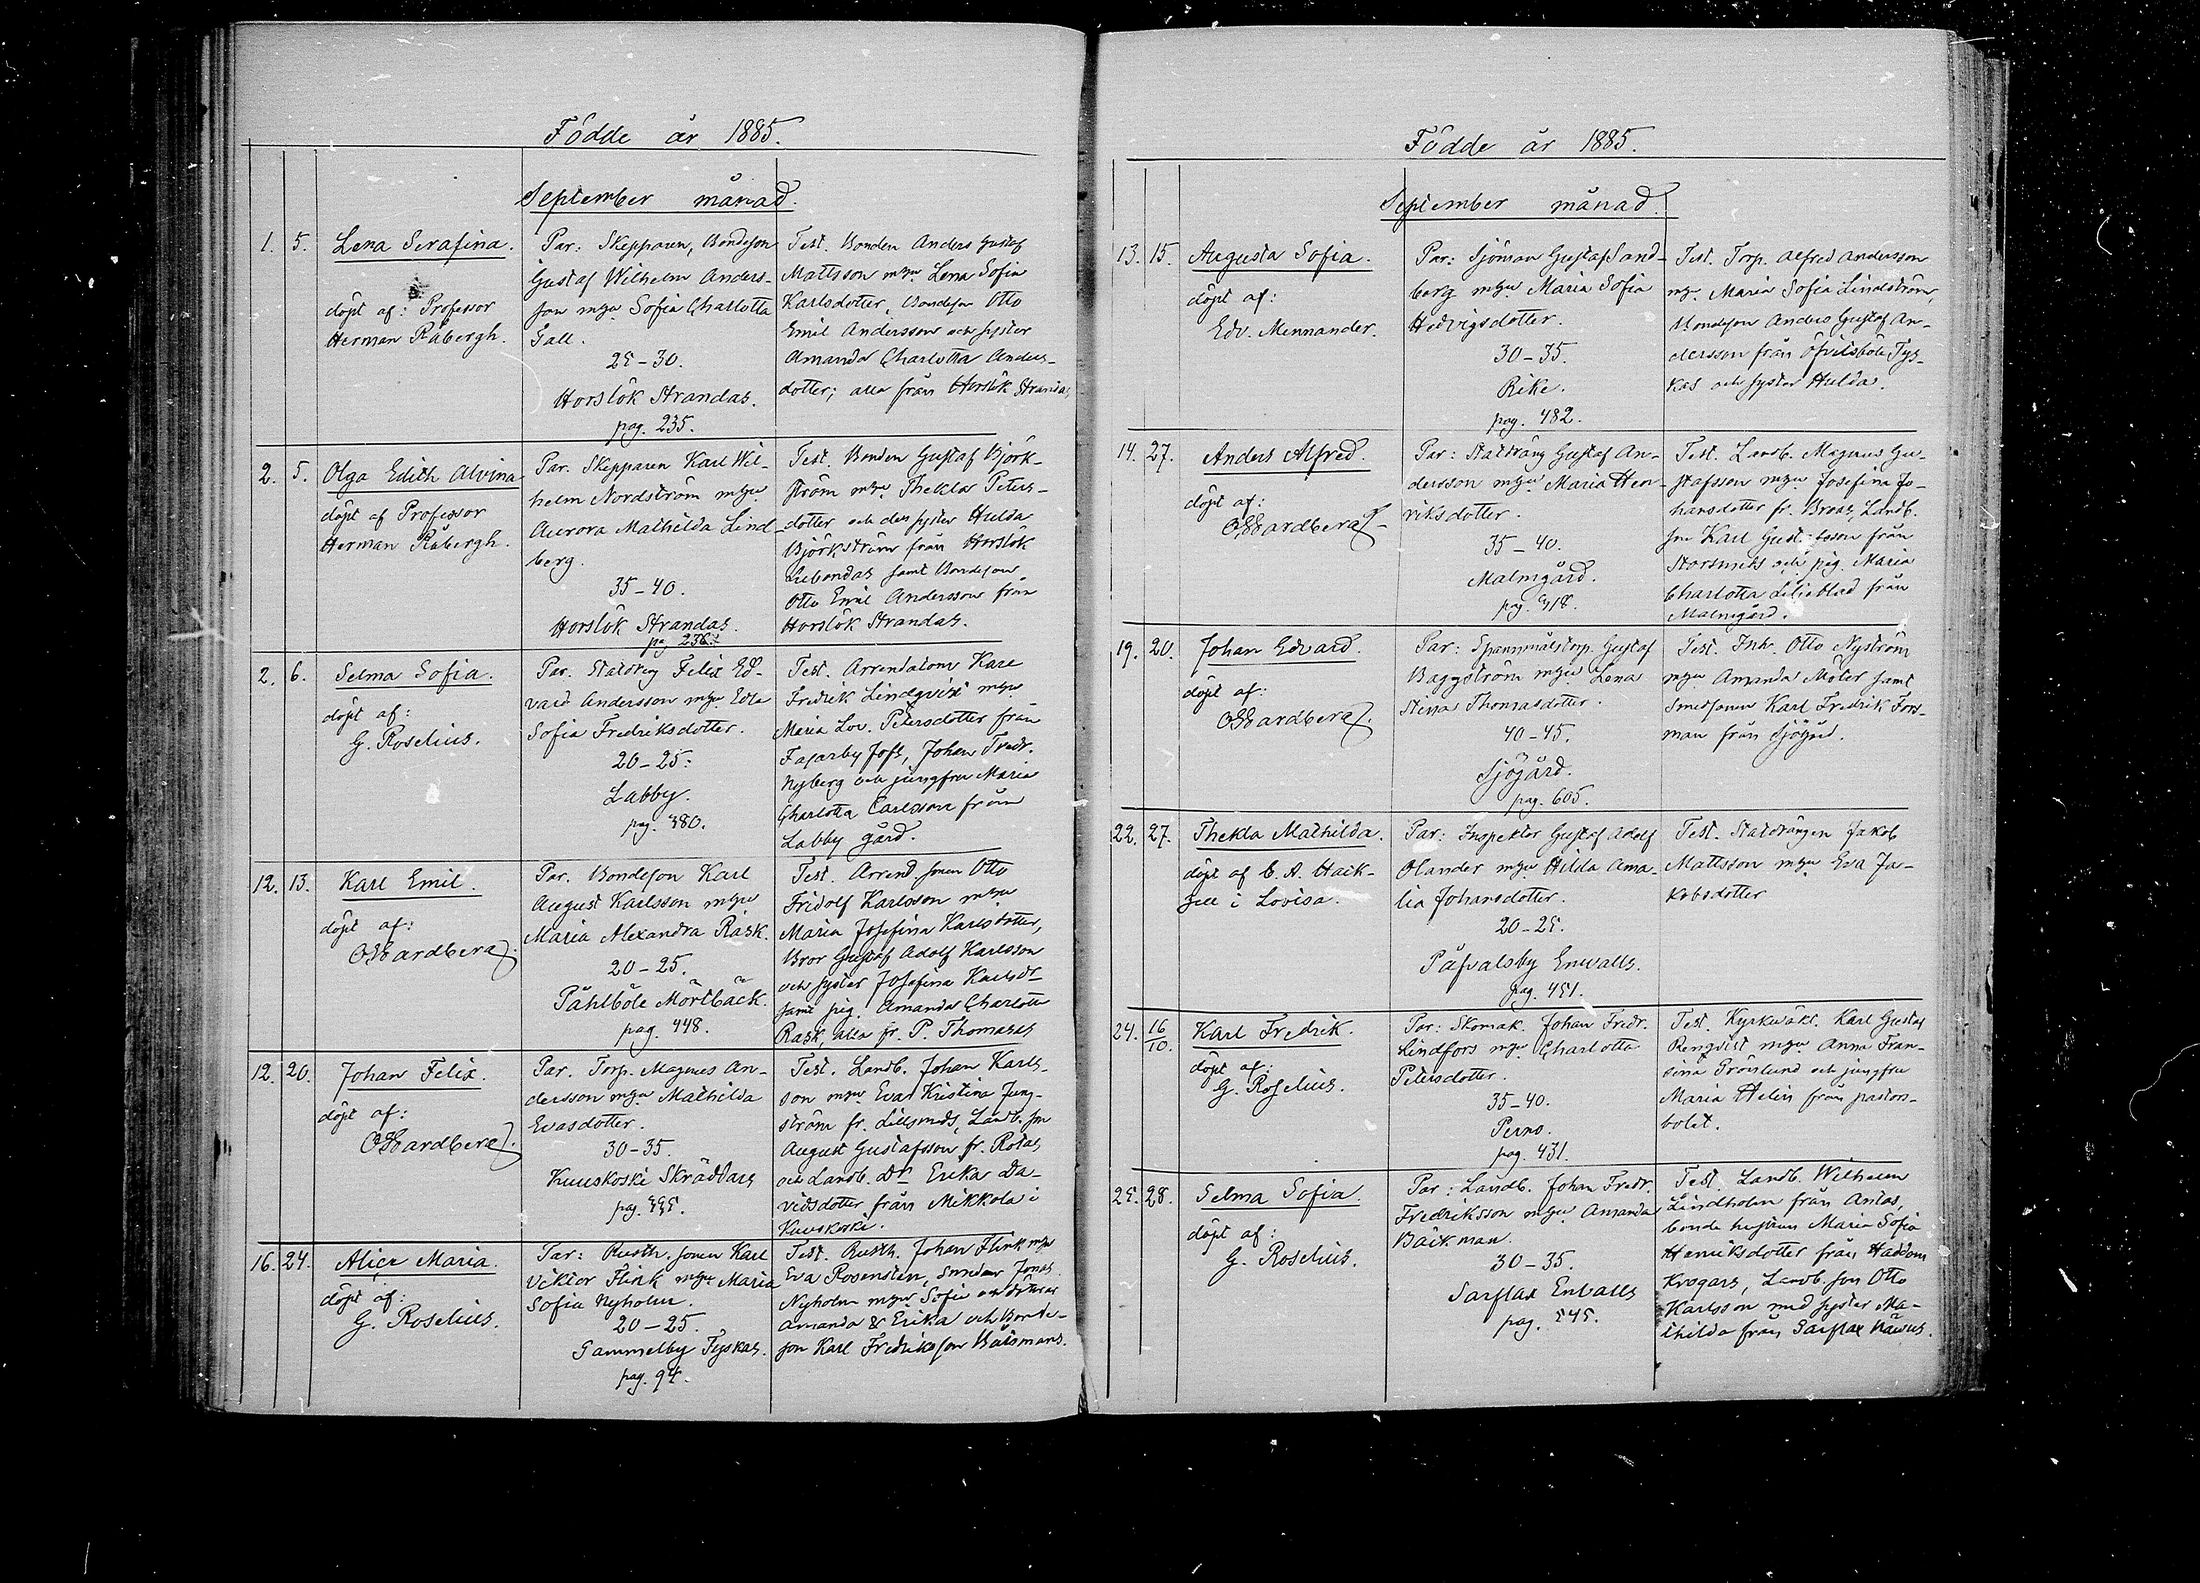 Födde år 1885.
September månad.
1. 5. Lena Serafina.
döpt af: Professor
Herman Råbergh.
Par: Skepparen, Bondeson
Gustaf Wilhelm Anders-
son m hu Sofia Charlotta
Gall.
25-30.
Horslök Strandas.
pag. 235.
Test. Bonden Anders Gustaf
Mattsson m hu Lena Sofia
Karlsdotter, Bondeson Otto
Emil Andersson och syster
Amanda Charlotta Anders-
dotter; alla från Horslök Strandas
2. 5. Olga Edith Alvina
döpt af Professor
Herman Råbergh.
Par. Skepparen Karl Wil-
helm Nordström m hu
Aurora Mathilda Lind-
berg.
35-40.
Horslök Strandas.
pag 238.
Test. Bonden Gustaf Björk-
ström m hu Thekla Peters-
dotter och des syster Hulda
Björkström från Horslök
samt Bondeson
Otto Emil Andersson från
Horslök Strandas.
2. 6. Selma Sofia.
döpt af:
G. Roselius.
Par. Statdräng Felix Ed-
vard Andersson m hu Edla
Sofia Fredriksdotter.
20-25.
Labby.
pag. 380.
Test. Arrendatorn Karl
Fredrik Lindqvist m hu
Maria Lov. Petersdotter från
Fasarby Jofs, Johan Fredr.
Nyberg och jungfru Maria
Charlotta Carlsson från
Labby gård.
12. 13. Karl Emil.
döpt af:
O Hardberg.
Par. Bondeson Karl
August Karlsson m hu
Maria Alexandra Rask.
20-25.
Påhlböle Mörtbäck.
pag. 448.
Test. Arrend. sonen Otto
Fridolf Karlsson m hu
Maria Josefina Karlsdotter,
Bror Gustaf Adolf Karlsson
och syster Josefina Karlsdr
samt pig. Amanda Charlotta
Rask, alla fr. P. Thomasas
12. 20. Johan Felix.
döpt af:
O Hardberg.
Par. Torp. Magnus An-
dersson m hu Mathilda
Evasdotter.
30-35.
Kuuskoski Skräddars
pag. 335.
Test. Landb. Johan Karls-
son m hu Eva Kristina Ljung-
ström fr. Lillsmeds, Landb. son
August Gustafsson fr. Rotas
och Landb. dr Erika Da-
vidsdotter från Mikkola i
Kuuskoski.
16. 24. Alice Maria.
döpt af:
G. Roselius.
Par: Rusth. sonen Karl
Viktor Flink m hu Maria
Sofia Nyholm.
20-25.
Gammelby Tyskas.
pag. 94.
Test. Rusth. Johan Flink m hu
Eva Rosensten, Smeden Jonas
Nyholm m hu Sofia och döttrar
Amanda & Erika och Bonde-
son Karl Fredriksson Båtsmans.
Födde år 1885.
September månad.
13. 15. Augusta Sofia.
döpt af:
Edv. Mennander.
Par: Sjöman Gustaf Sand-
berg m hu Maria Sofia
Hedvigsdotter.
30-35.
Rike.
pag. 482.
Test. Torp. Alfred Andersson
m hu Maria Sofia Lindström,
Bondeson Anders Gustaf An-
dersson från Öfvitsböle Tys-
kas och syster Hulda.
14. 27. Anders Alfred.
döpt af:
O Hardberg
Par: Statdräng Gustaf An-
dersson m hu Maria Hen-
riksdotter.
35-40.
Malmgård.
pag. 318.
Test. Landb. Magnus Gu-
stafsson m hu Josefina Jo-
hansdotter fr. Broas, Landb.
son Karl Gustafsson från
Storsmeds och pig. Maria
Charlotta Liljeblad från
Malmgård.
19. 20. Johan Edvard.
döpt af:
O Hardberg.
Par: Spannmålstorp. Gustaf
Baggström m hu Lena
Stina Thomasdotter.
40-45.
Sjögård.
pag. 605.
Test. Inh. Otto Nyström
m hu Amanda Möler samt
Smedsonen Karl Fredrik Fors-
man från Sjögård.
22. 27. Thekla Mathilda.
döpt af C. A. Haik-
gell i Lovisa.
Par: Inspektor Gustaf Adolf
Olander m hu Hilda Ama-
lia Johansdotter.
20-25.
Påfvalsby Envalls.
pag. 451.
Test. Statdrängen Jakob
Mattsson m hu Eva Ja-
kobsdotter
24. 16/10. Karl Fredrik.
döpt af:
G. Roselius.
Par: Skomak. Johan Fredr.
Lindfors m hu Charlotta
Petersdotter.
35-40.
Perno.
pag. 431.
Test. Kyrkväkt. Karl Gustaf
Renqvist m hu Anna Fran-
sina Gröislund och jungfru
Maria Helin från pastors-
bolet.
25. 28. Selma Sofia.
döpt af:
G. Roselius.
Par: Landb. Johan Fredr.
Fredriksson m hu Amanda
Bäckman.
30-35.
Sarflax Envalls
pag. 545.
Test. Landb. Wilhelm
Lindholm från Antas,
bonde hustrun Maria Sofia
Henriksdotter från Haddom
Krogars, Landb. son Otto
Karlsson med syster Ma-
thilda från Sarflax Näsus.